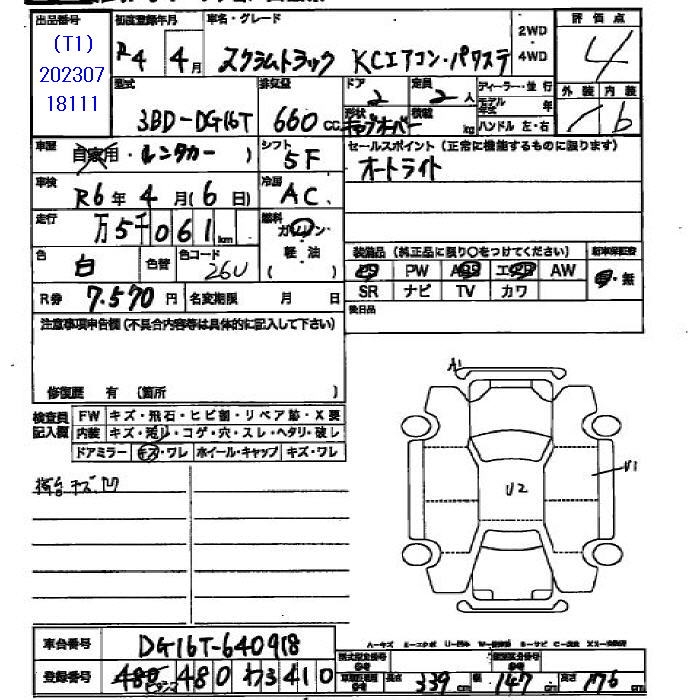 出品番号 初度登録年月 車名・グレード 2WD 評価点
(T1) R4 4月 スクラムトラック KCエアコン・パワステ 4WD 4
202307
18111
型式 排気量 ドア 定員 ディーラー・並行 外装 内装
3BD-DG16T 660cc 2 2人 モデル年式 年 b
形状 キャブオーバー 積載 kg ハンドル 左・右
車歴 自家用・レンタカー ) シフト 5F セールスポイント (正常に機能するものに限ります)
車検 R6年4月(6日) 冷房 AC オートライト
走行 万5千061km 燃料 ガソリン・軽油 ( )
装備品 (純正品に限り○をつけてください)
色 白 色替 色コード 26U
PW AW 無
SR ナビ TV カワ
R券 7,570円 名変期限 月 日 後日品
注意事項申告欄 (不具合内容等は具体的に記入して下さい)
修復歴 有 〔箇所 〕
検査員記入欄 FW キズ・飛石・ヒビ割・リペア跡・X要
内装 キズ・汚レ・コゲ・穴・スレ・ヘタリ・破レ
ドアミラー キズ・ワレ ホイール・キャップ キズ・ワレ
荷台キズ凹
A1
U2
U1
車台番号 DG16T-640918
登録番号 480 480 わ3410
長さ 339cm 幅 147cm 高さ 176cm